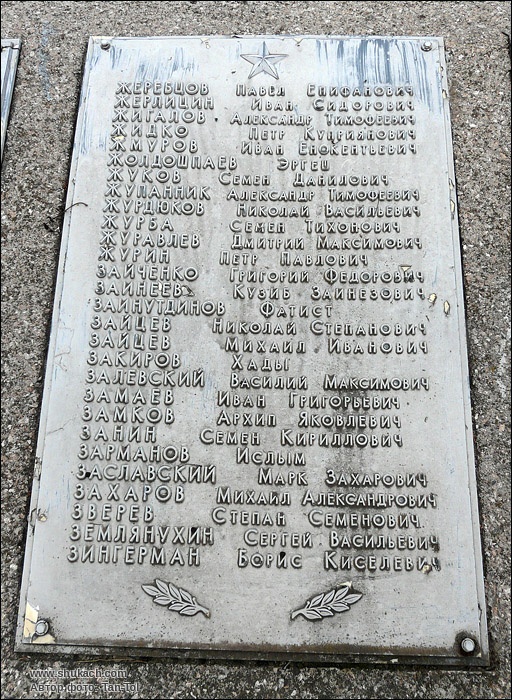 ЖЕРЕВЦОВ ПАВЕЛ ЕПИФАНОВИЧ
ЖЕРЛИЦИН ИВАН СИДОРОВИЧ
ЖИГАЛОВ АЛЕКСАНДР ТИМОФЕЕВИЧ
ЖИДКО ПЕТР КУПРИЯНОВИЧ
ЖМУРОВ ИВАН ЕНОКЕНТЬЕВИЧ
ЖОЛДОШПАЕВ ЭРГЕШ
ЖУКОВ СЕМЕН ДАНИЛОВИЧ
ЖУПАННИК АЛЕКСАНДР ТИМОФЕЕВИЧ
ЖУРДЮКОВ НИКОЛАЙ ВАСИЛЬЕВИЧ
ЖУРБА СЕМЕН ТИХОНОВИЧ
ЖУРАВЛЕВ ДМИТРИЙ МАКСИМОВИЧ
ЖУРИН ПЕТР ПАВЛОВИЧ
ЗАЙЧЕНКО ГРИГОРИЙ ФЕДОРОВИЧ
ЗАИНЕЕВ КУЗИБ ЗАИНЕЗОВИЧ
ЗАЙНУТДИНОВ ФАТИСТ
ЗАЙЦЕВ НИКОЛАЙ СТЕПАНОВИЧ
ЗАЙЦЕВ МИХАИЛ ИВАНОВИЧ
ЗАКИРОВ ХАДЫ
ЗАЛЕВСКИЙ ВАСИЛИЙ МАКСИМОВИЧ
ЗАМАЕВ ИВАН ГРИГОРЬЕВИЧ
ЗАМКОВ АРХИП ЯКОВЛЕВИЧ
ЗАНИН СЕМЕН КИРИЛЛОВИЧ
ЗАРМАНОВ ИСЛЫМ
ЗАСЛАВСКИЙ МАРК ЗАХАРОВИЧ
ЗАХАРОВ МИХАИЛ АЛЕКСАНДРОВИЧ
ЗВЕРЕВ СТЕПАН СЕМЕНОВИЧ
ЗЕМЛЯНУХИН СЕРГЕЙ ВАСИЛЬЕВИЧ
ЗИНГЕРМАН БОРИС КИСЕЛЕВИЧ
www.shukach.com
Автор фото: Tan-tol